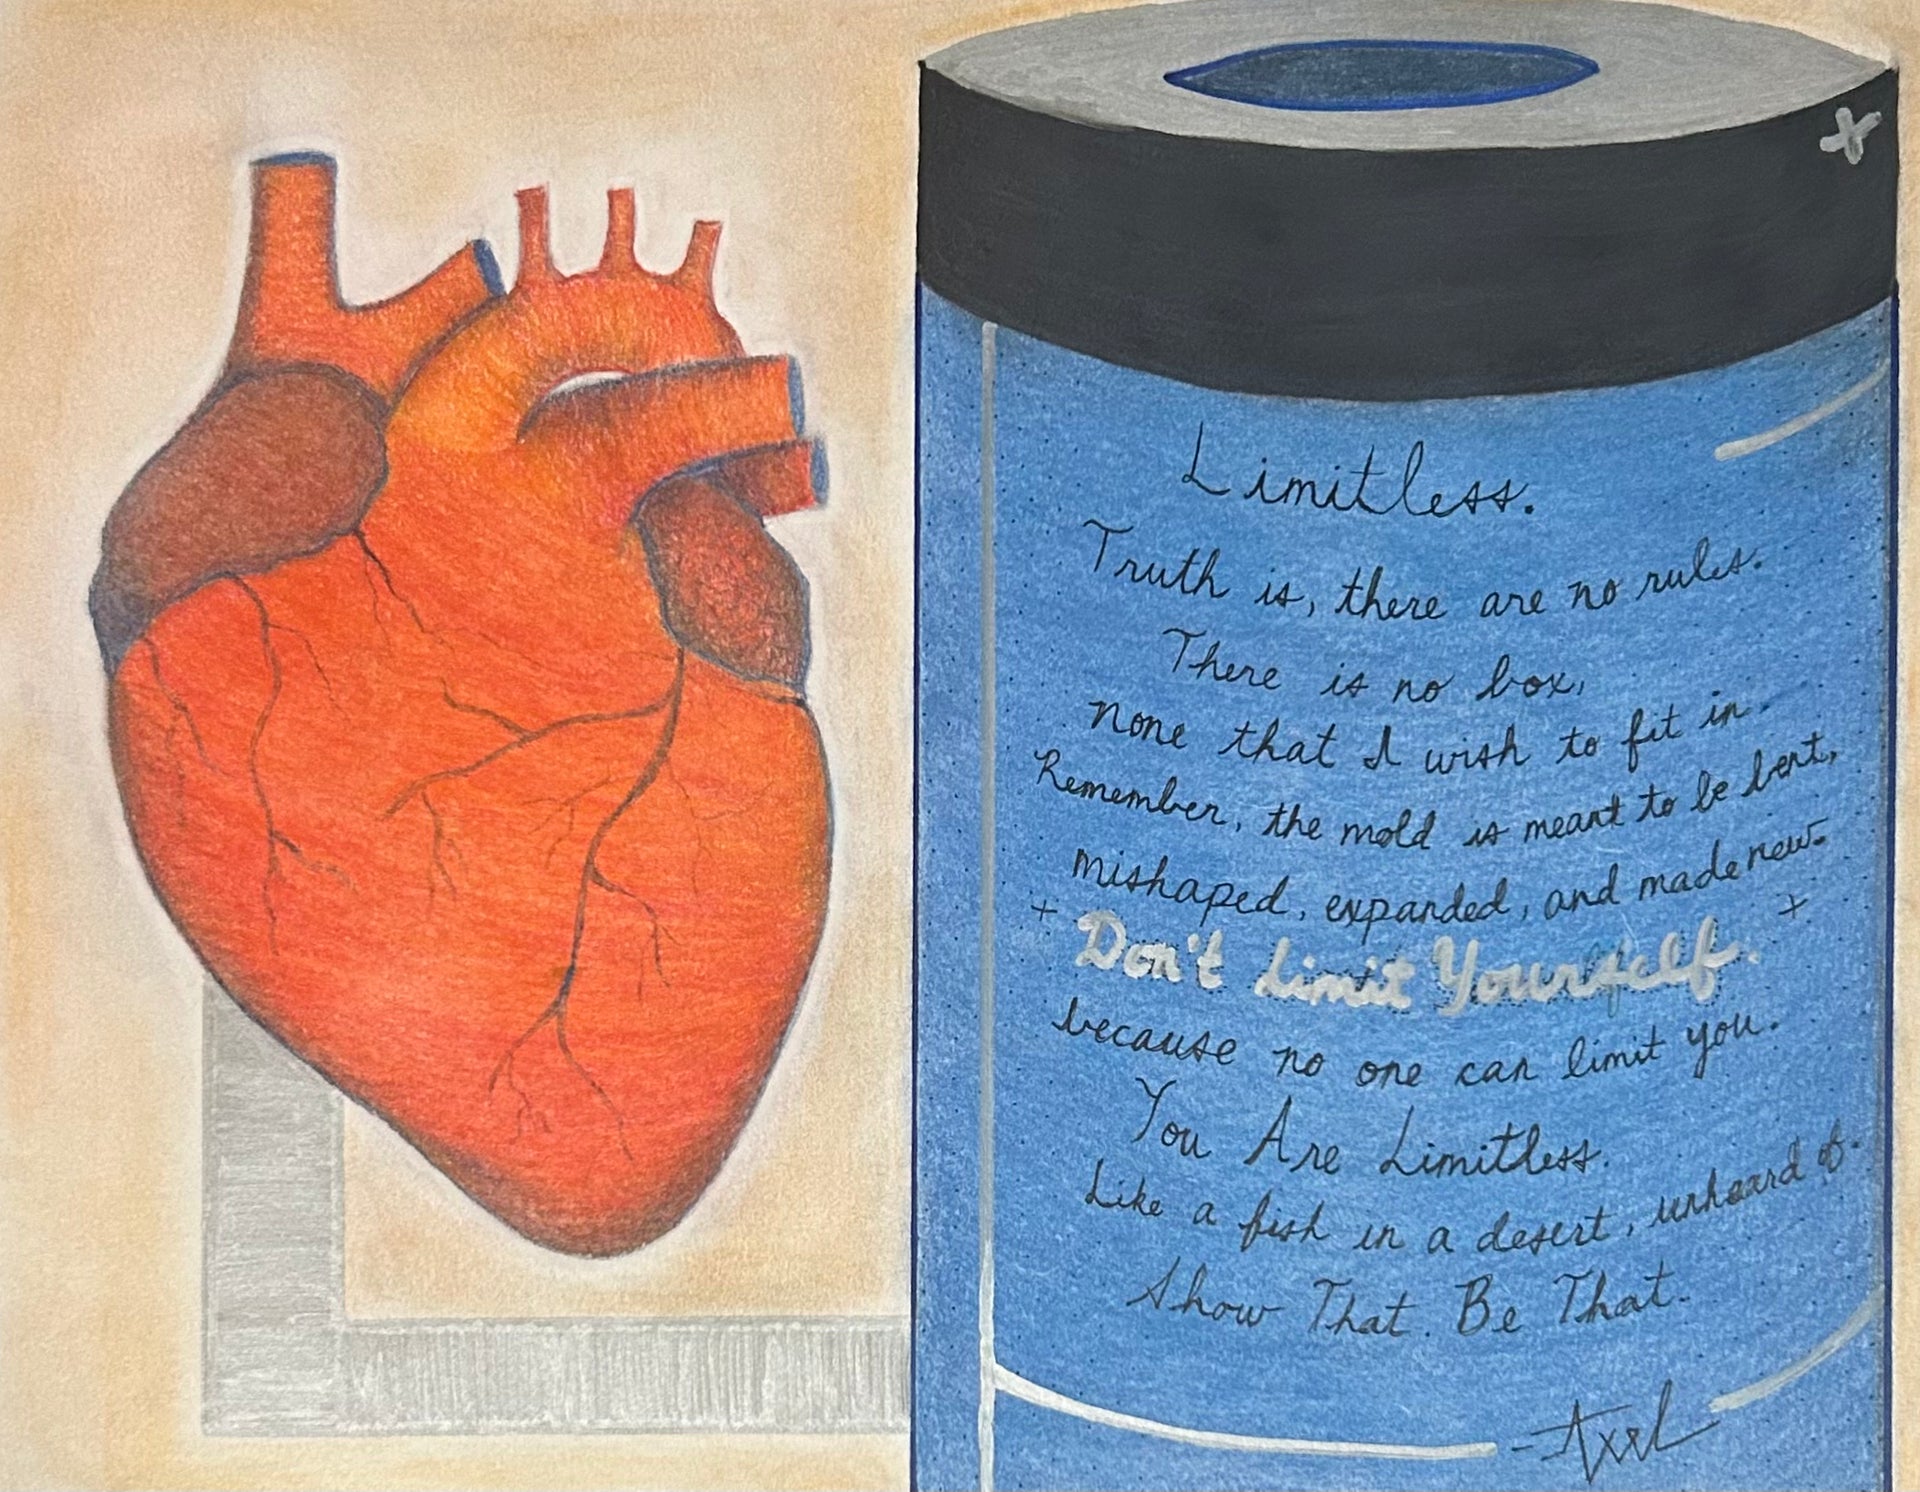 Limitless.
Truth is, there are no rules.
There is no box,
none that I wish to fit in.
Remember, the mold is meant to be bent,
mishaped, expanded, and made new.
+ Don't Limit Yourself. +
because no one can limit you.
You Are Limitless.
Like a fish in a desert, unheard of.
Show That. Be That.
- Axel